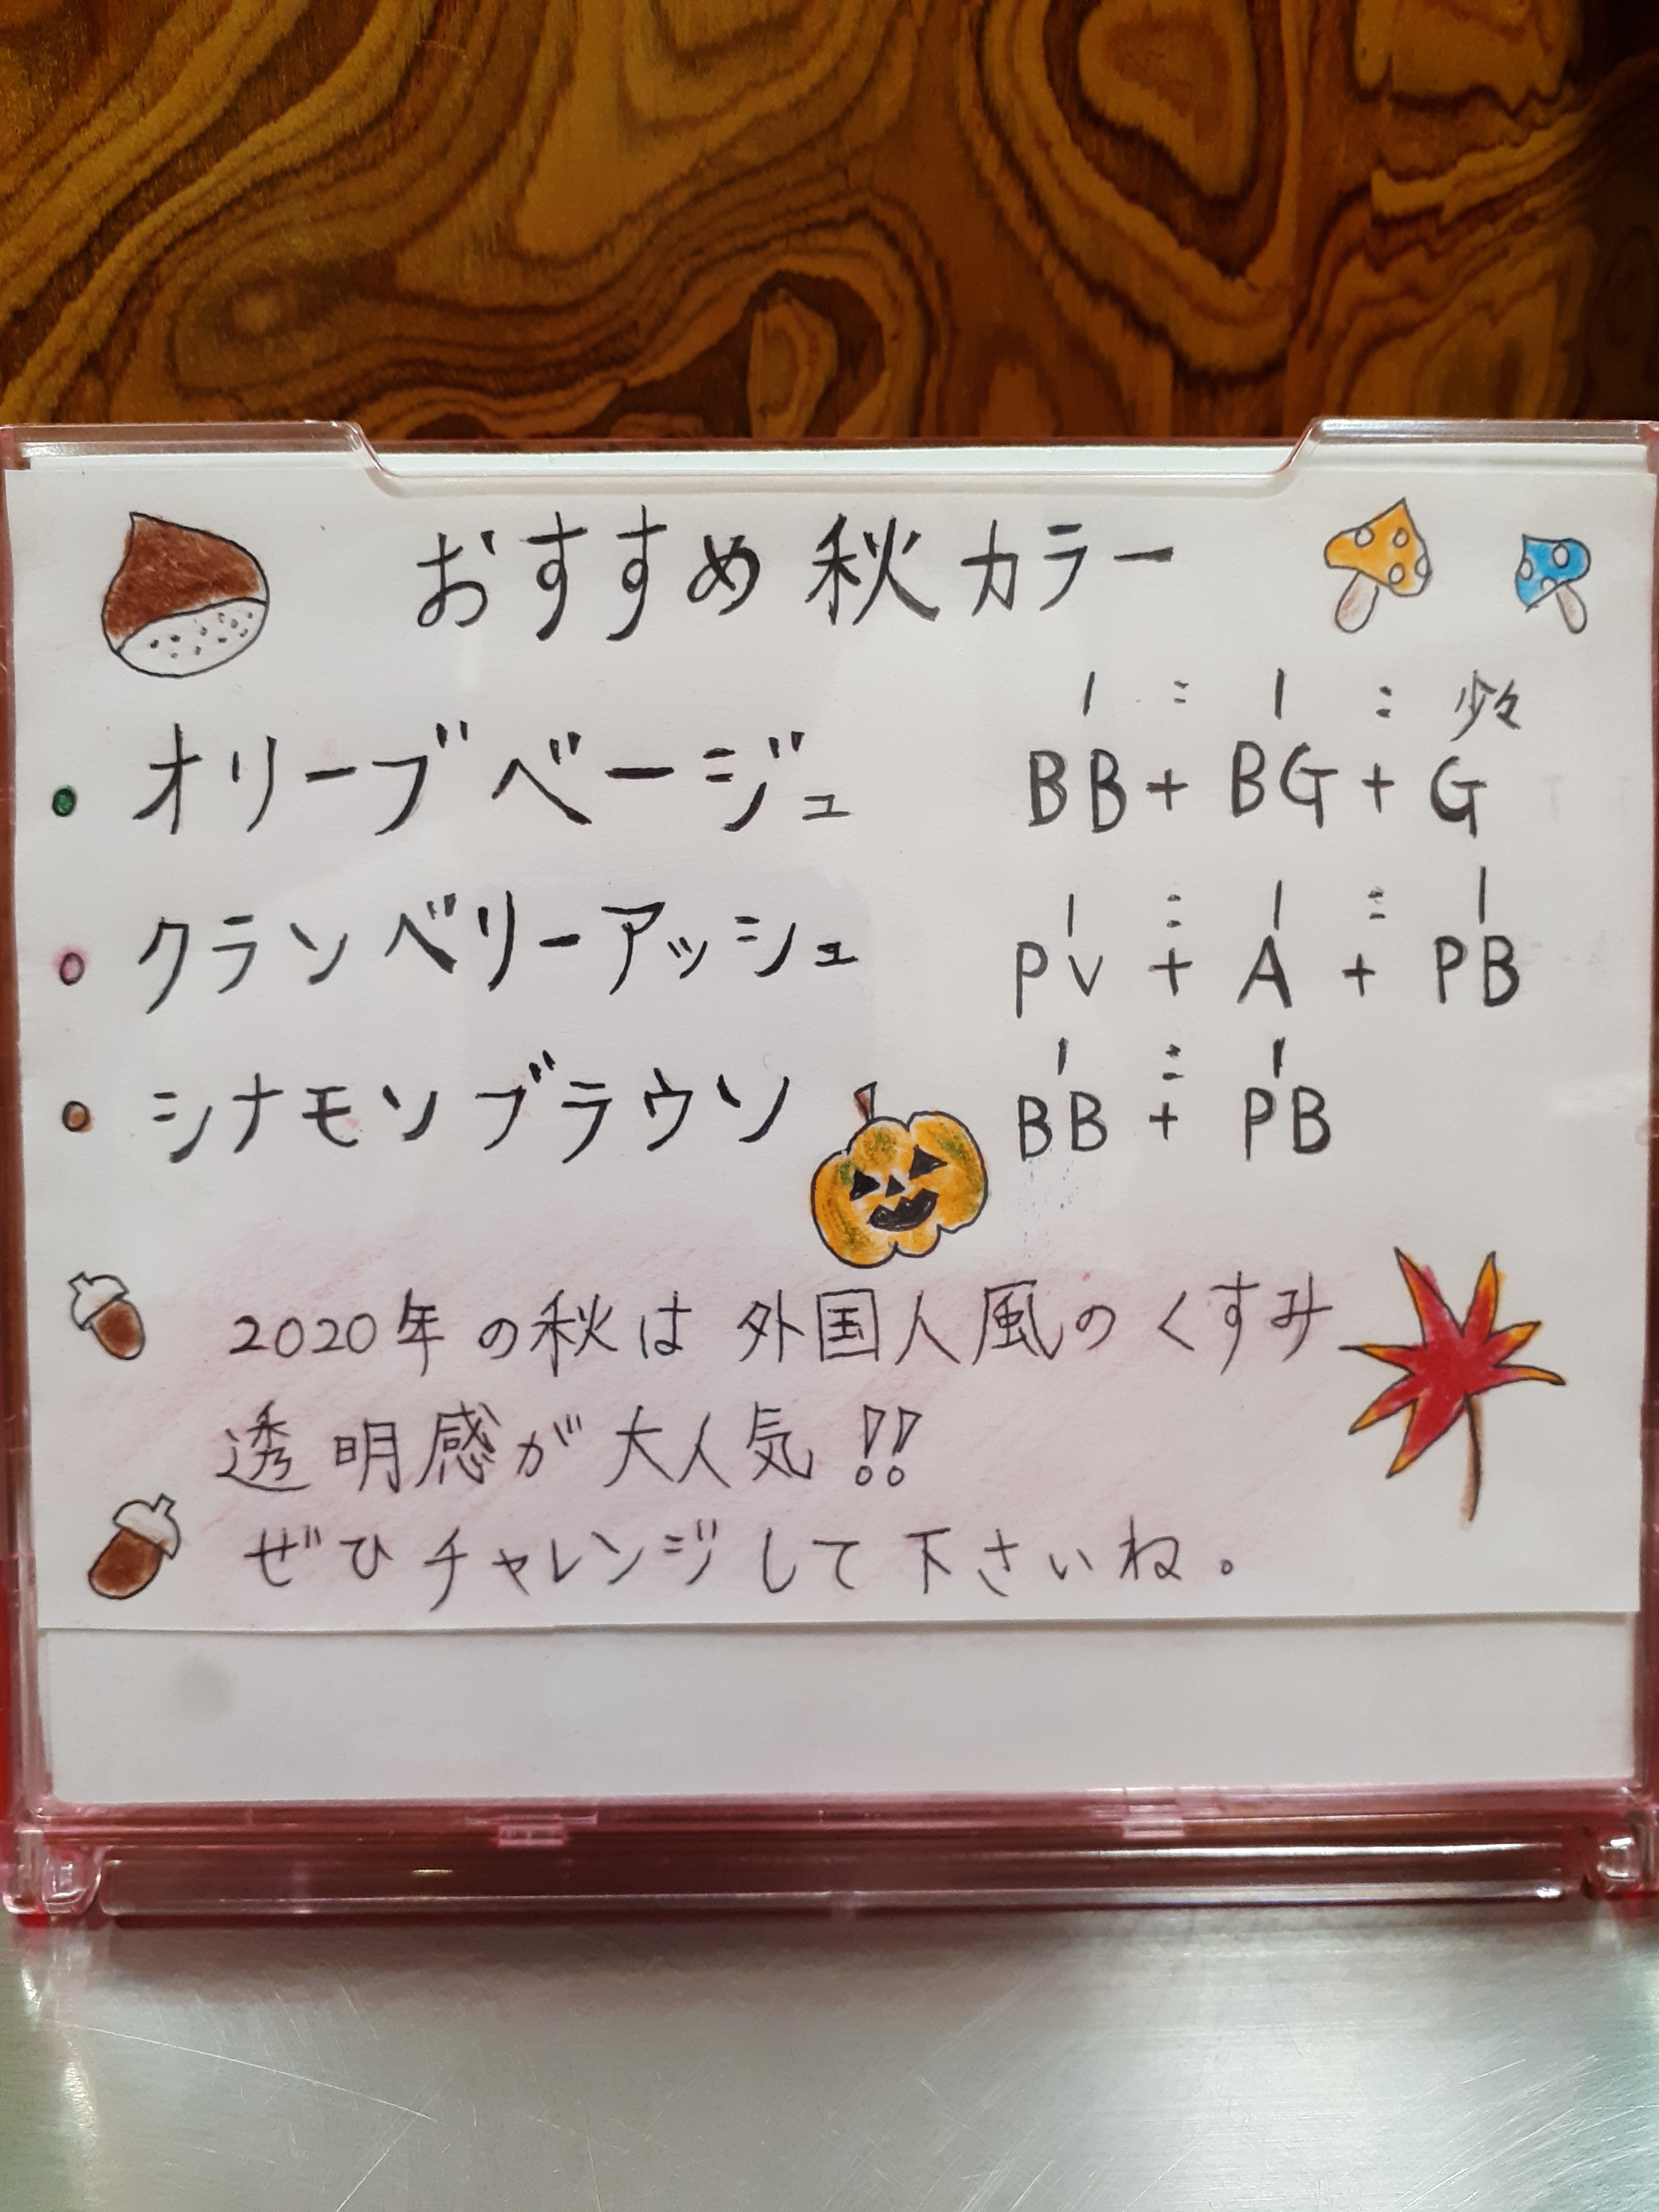 おすすめ秋カラー
1 : 1 : 少々
・オリーブベージュ BB + BG + G
1 : 1 : 1
・クランベリーアッシュ PV + A + PB
1 : 1
・シナモンブラウン BB + PB
2020年の秋は外国人風のくすみ
透明感が大人気!!
ぜひチャレンジして下さいね。